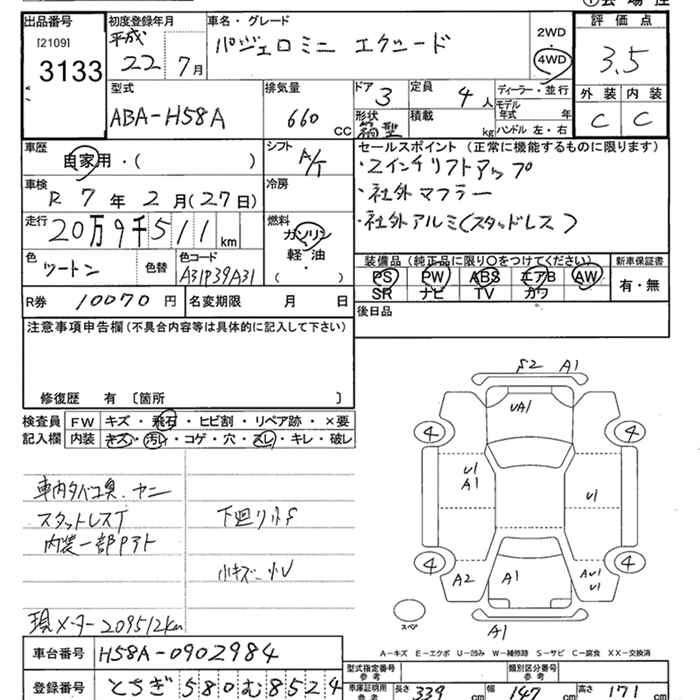 出品番号 初度登録年月 車名・グレード 2WD 評価点
[2109] 平成 パジェロミニ エクシード ・
3133 22年 7月 4WD 3.5
型式 排気量 ドア 3 定員 4人 ディーラー・並行 外装 内装
ABA-H58A 660 CC 形状 箱型 積載 kg モデル年式 年 C C
ハンドル 左・右
車歴 自家用・( ) シフト A/T セールスポイント (正常に機能するものに限ります)
・2インチリフトアップ
車検 R7年2月(27日) 冷房 ・社外マフラー
走行 20万9千511km 燃料 ガソリン ・社外アルミ(スタッドレス)
軽油・
( )
色 ツートン 色替 色コード A31P39A31 装備品 (純正品に限り○をつけてください) 新車保証書
PS PW ABS エアB AW 有・無
SR ナビ TV カワ
R券 10070円 名変期限 月 日 後日品
注意事項申告欄(不具合内容等は具体的に記入して下さい)
修復歴 有 〔箇所 〕
検査員 FW キズ・飛石・ヒビ割・リペア跡・×要
記入欄 内装 キズ・汚れ・コゲ・穴・スレ・キレ・破レ
車内タバコ臭、ヤニ
スタットレスT 下廻り
内装一部
小キズ、小U
現メーター 209512km
S2 A1
UA1
4 4
U1
A1 U1
4 4
A2 A1 AU1
U1
スペア A1
A-キズ E-エクボ U-凹み W-補修跡 S-サビ C-腐食 XX-交換済
車台番号 H58A-0902984
登録番号 とちぎ 580 む 8524
型式指定番号 参考 類別区分番号 参考
車庫証明用 参考 長さ 339 cm 幅 147 cm 高さ 171 cm